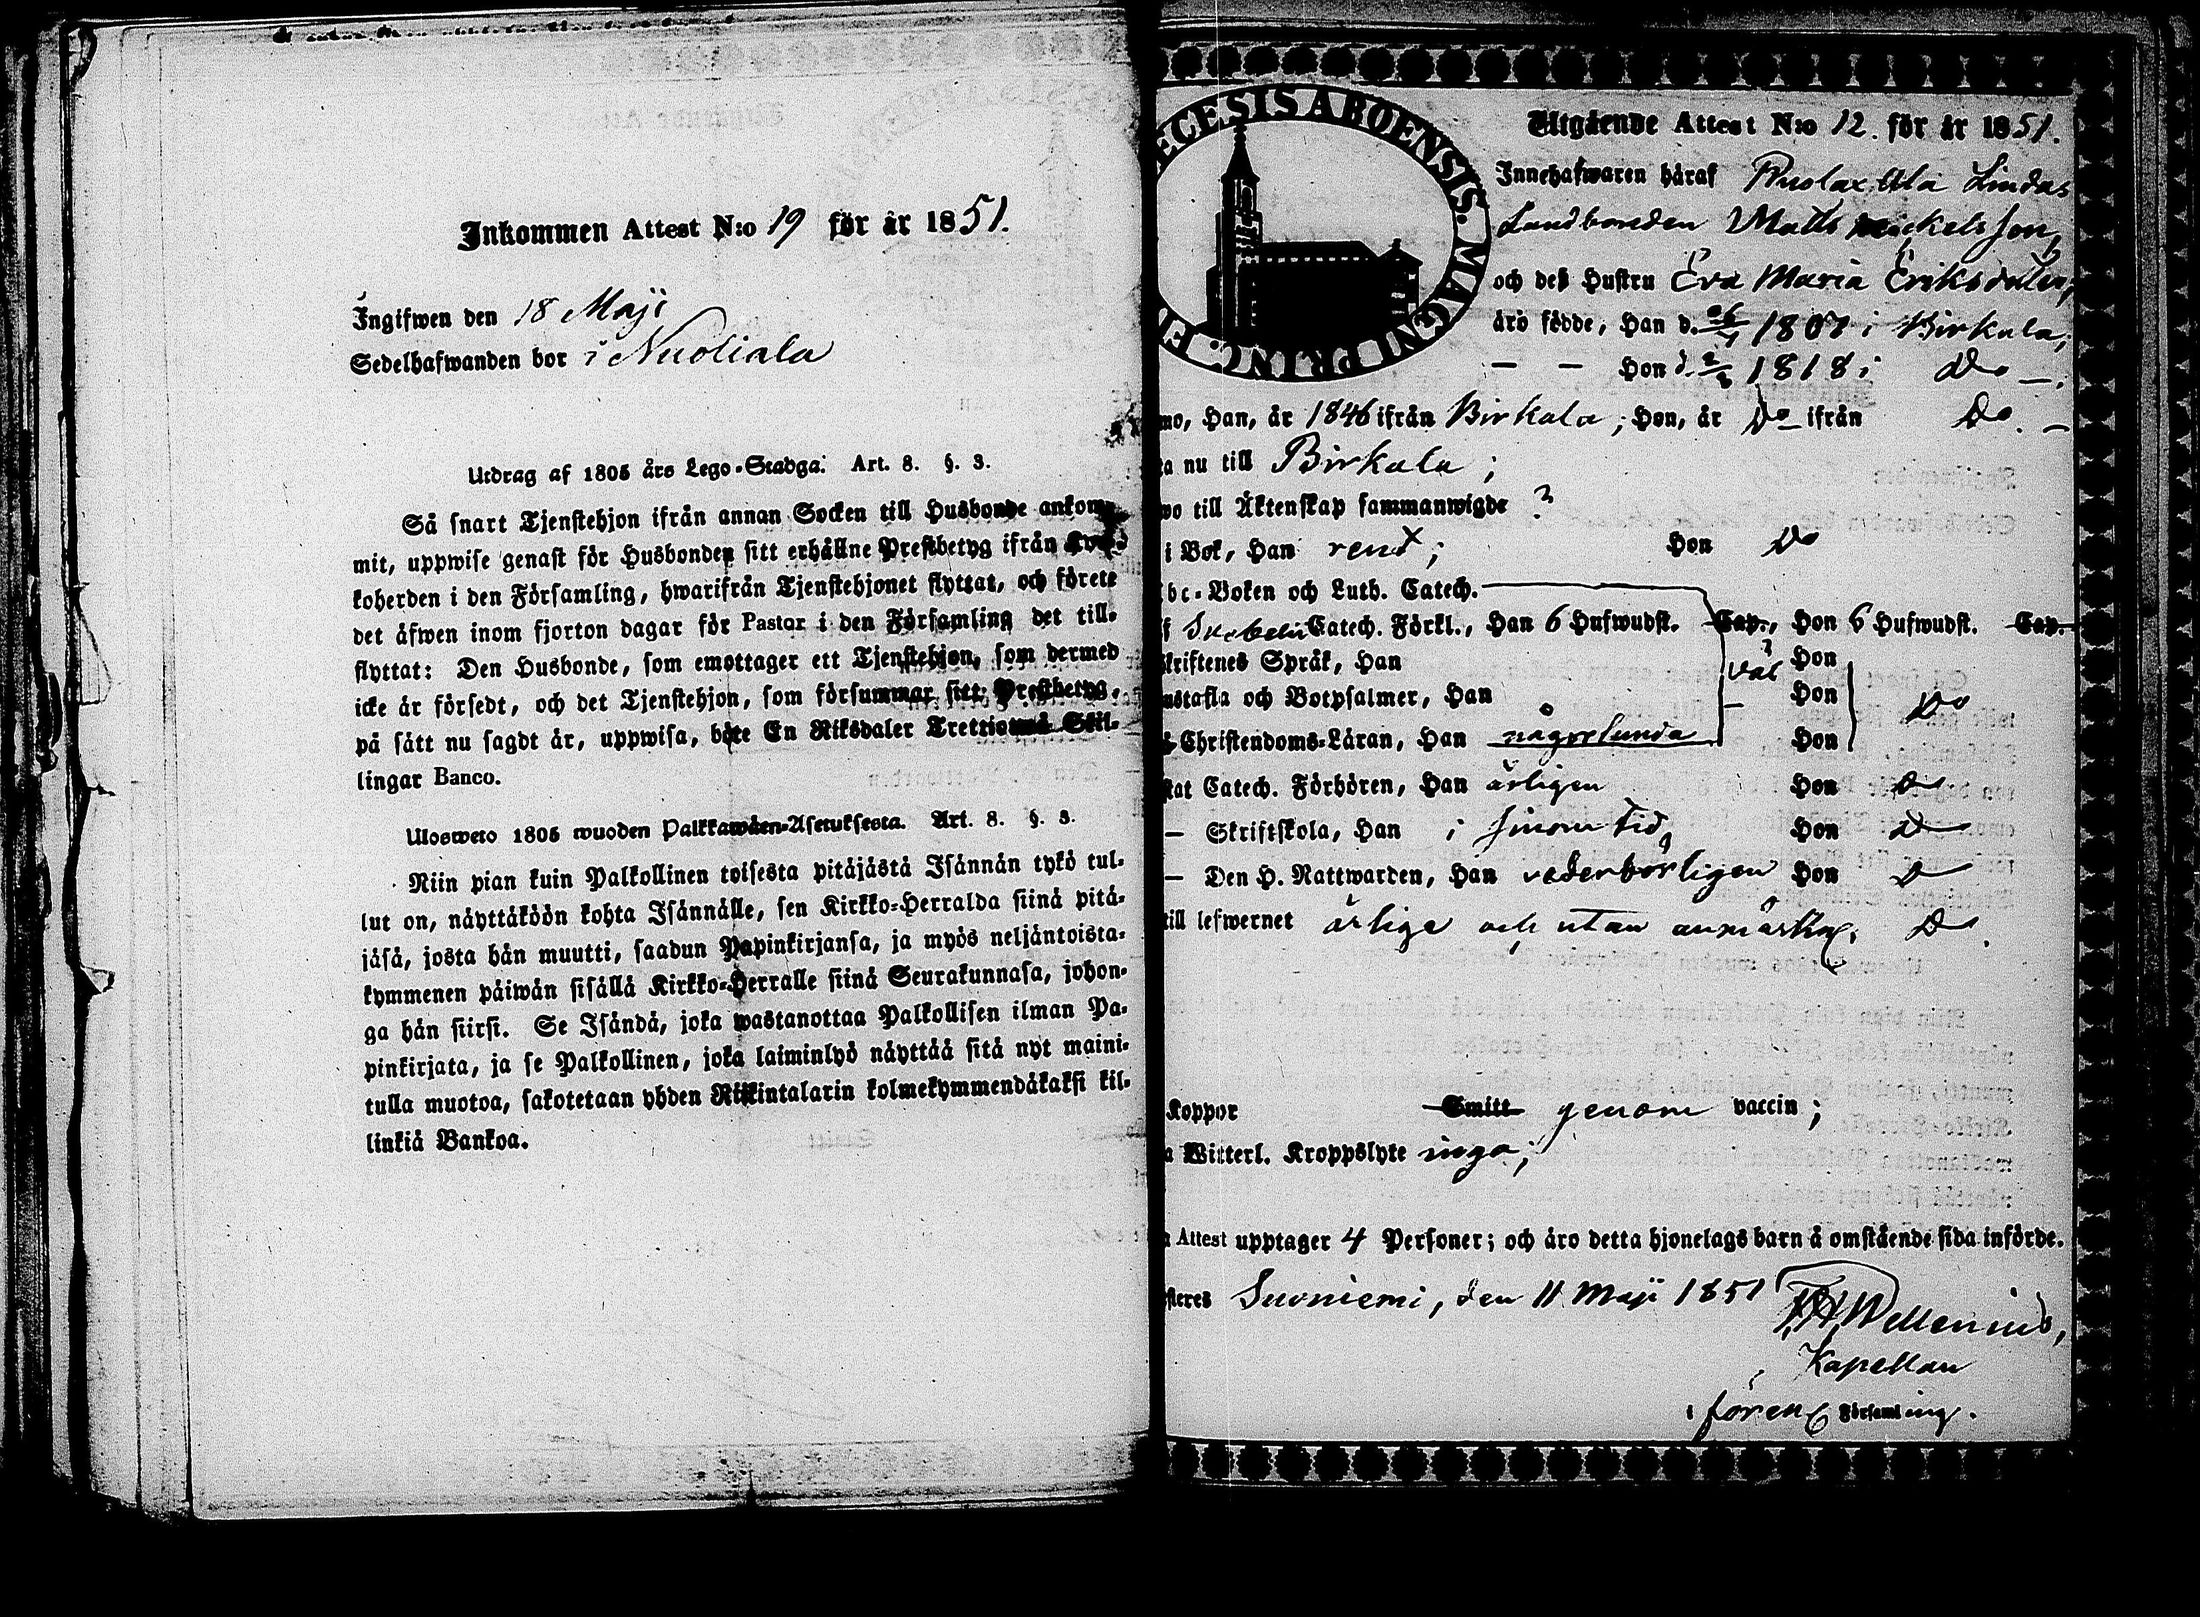 Inkommen Attest N:o 19 för år 1851.
Ingifwen den 18 Maji
Sedelhafwanden bor i Nuoliala
Utdrag af 1805 års Lego-Stadga. Art. 8. §. 3.
Så snart Tjenstehjon ifrån annan Socken till Husbonde ankom-
mit, uppwise genast för Husbonden sitt erhållne Prestbetyg ifrån
koherden i den Församling, hwarifrån Tjenstehjonet flyttat, och förete
det äfwen inom fjorton dagar för Pastor i den Församling det till-
flyttat: Den Husbonde, som emottager ett Tjenstehjon, som dermed
icke är försedt, och det Tjenstehjon, som försummar sitt Prestbetyg,
på sätt nu sagdt är, uppwisa, böte En Riksdaler Trettiotwå Skil-
lingar Banco.
Ulosweto 1805 wuoden Palkkawäen-Asetuksesta. Art. 8. §. 3.
Niin pian kuin Palkollinen toisesta pitäjästä Isännän tykö tul-
lut on, näyttäköön kohta Isännälle, sen Kirkko-Herralda siinä pitä-
jäsä, josta hän muutti, saadun Papinkirjansa, ja myös neljäntoista-
kymmenen päiwän sisällä Kirkko-Herralle siinä Seurakunnasa, johon-
ga hän siirsi. Se Isändä, joka wastanottaa Palkollisen ilman Pa-
pinkirjata, ja se Palkollinen, joka laiminlyö näyttää sitä nyt maini-
tulla muotoa, sakotetaan yhden Riikintalarin kolmekymmendäkaksi kil-
linkiä Bankoa.
ECESIS ABOENSIS. MAGNI PRINC.
Utgående Attest N:o 12. för år 1851.
Innehafwaren häraf Ala Lindas
Landbonden Matts Mickelsson,
och deß Hustru Eva Maria Eriksdotter,
äro födde, Han d. 1807 i Birkala,
— — Hon d. 1818 i Do —.
mo, Han, år 1846 ifrån Birkala; Hon, år Do ifrån Do. —
ta nu till Birkala;
wo till Äktenskap sammanwigde ?
i Bok, Han rent; Hon Do
bc-Boken och Luth. Catech.
Svebelii Catech. Förkl., Han 6 Hufwudst. Cap., Hon 6 Hufwudst. Cap.
kriftenes Språk, Han väl Hon
ustafla och Botpsalmer, Han Hon Do
Christendoms-Läran, Han någorlunda Hon
stat Catech. Förhören, Han årligen Hon Do
— Skriftskola, Han i sinom tid, Hon Do
— Den H. Nattwarden, Han vederbörligen Hon Do
till lefwernet ärlige och utan anmärkn. Do.
Koppor Smitt genom vaccin;
a Witterl. Kroppslyte inga;
Attest upptager 4 Personer; och äro detta hjonelags barn å omstående sida införde.
steres Suoniemi, den 11 Maji 1851
Wellenius,
Kapellan
i fören. Församling.